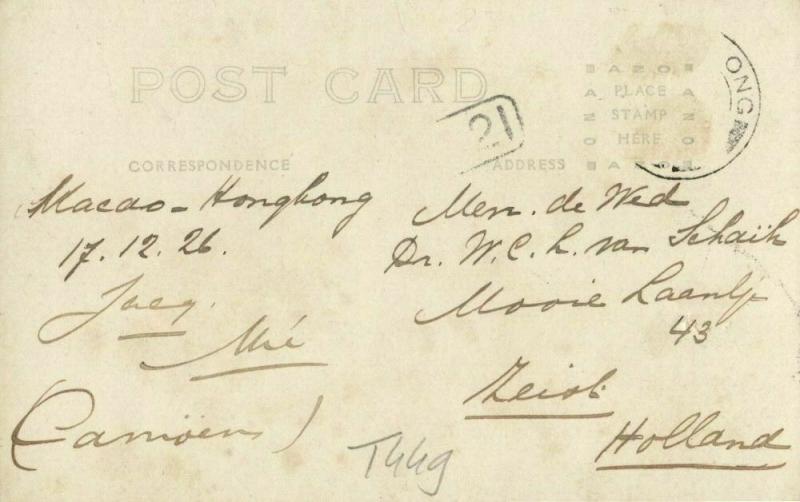 POST CARD
AZO
PLACE
STAMP
HERE
AZO
ONG
21
CORRESPONDENCE
ADDRESS
Macao - Hongkong
17.12.26.
Jacq.
Mié
(Camöens)
Mevr. de Wed
Dr. W. C. L. van Schaïk
Mooie Laantje
43
Zeist
Holland
T449